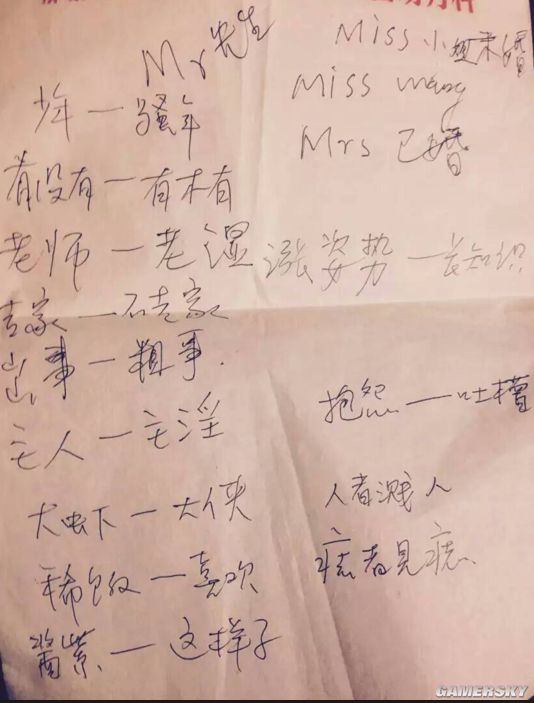 Mr 先生
Miss 小姐未婚
Miss wang
Mrs 已婚
少年一骚年
有没有一有木有
老师一老湿
涨姿势一长知识
专家一砖家
出事一粗事.
抱怨一吐槽
主人一主淫
大虾一大侠
人者溅人
稀饭一喜欢
痣者见痣
酱紫一这样子
GAMERSKY